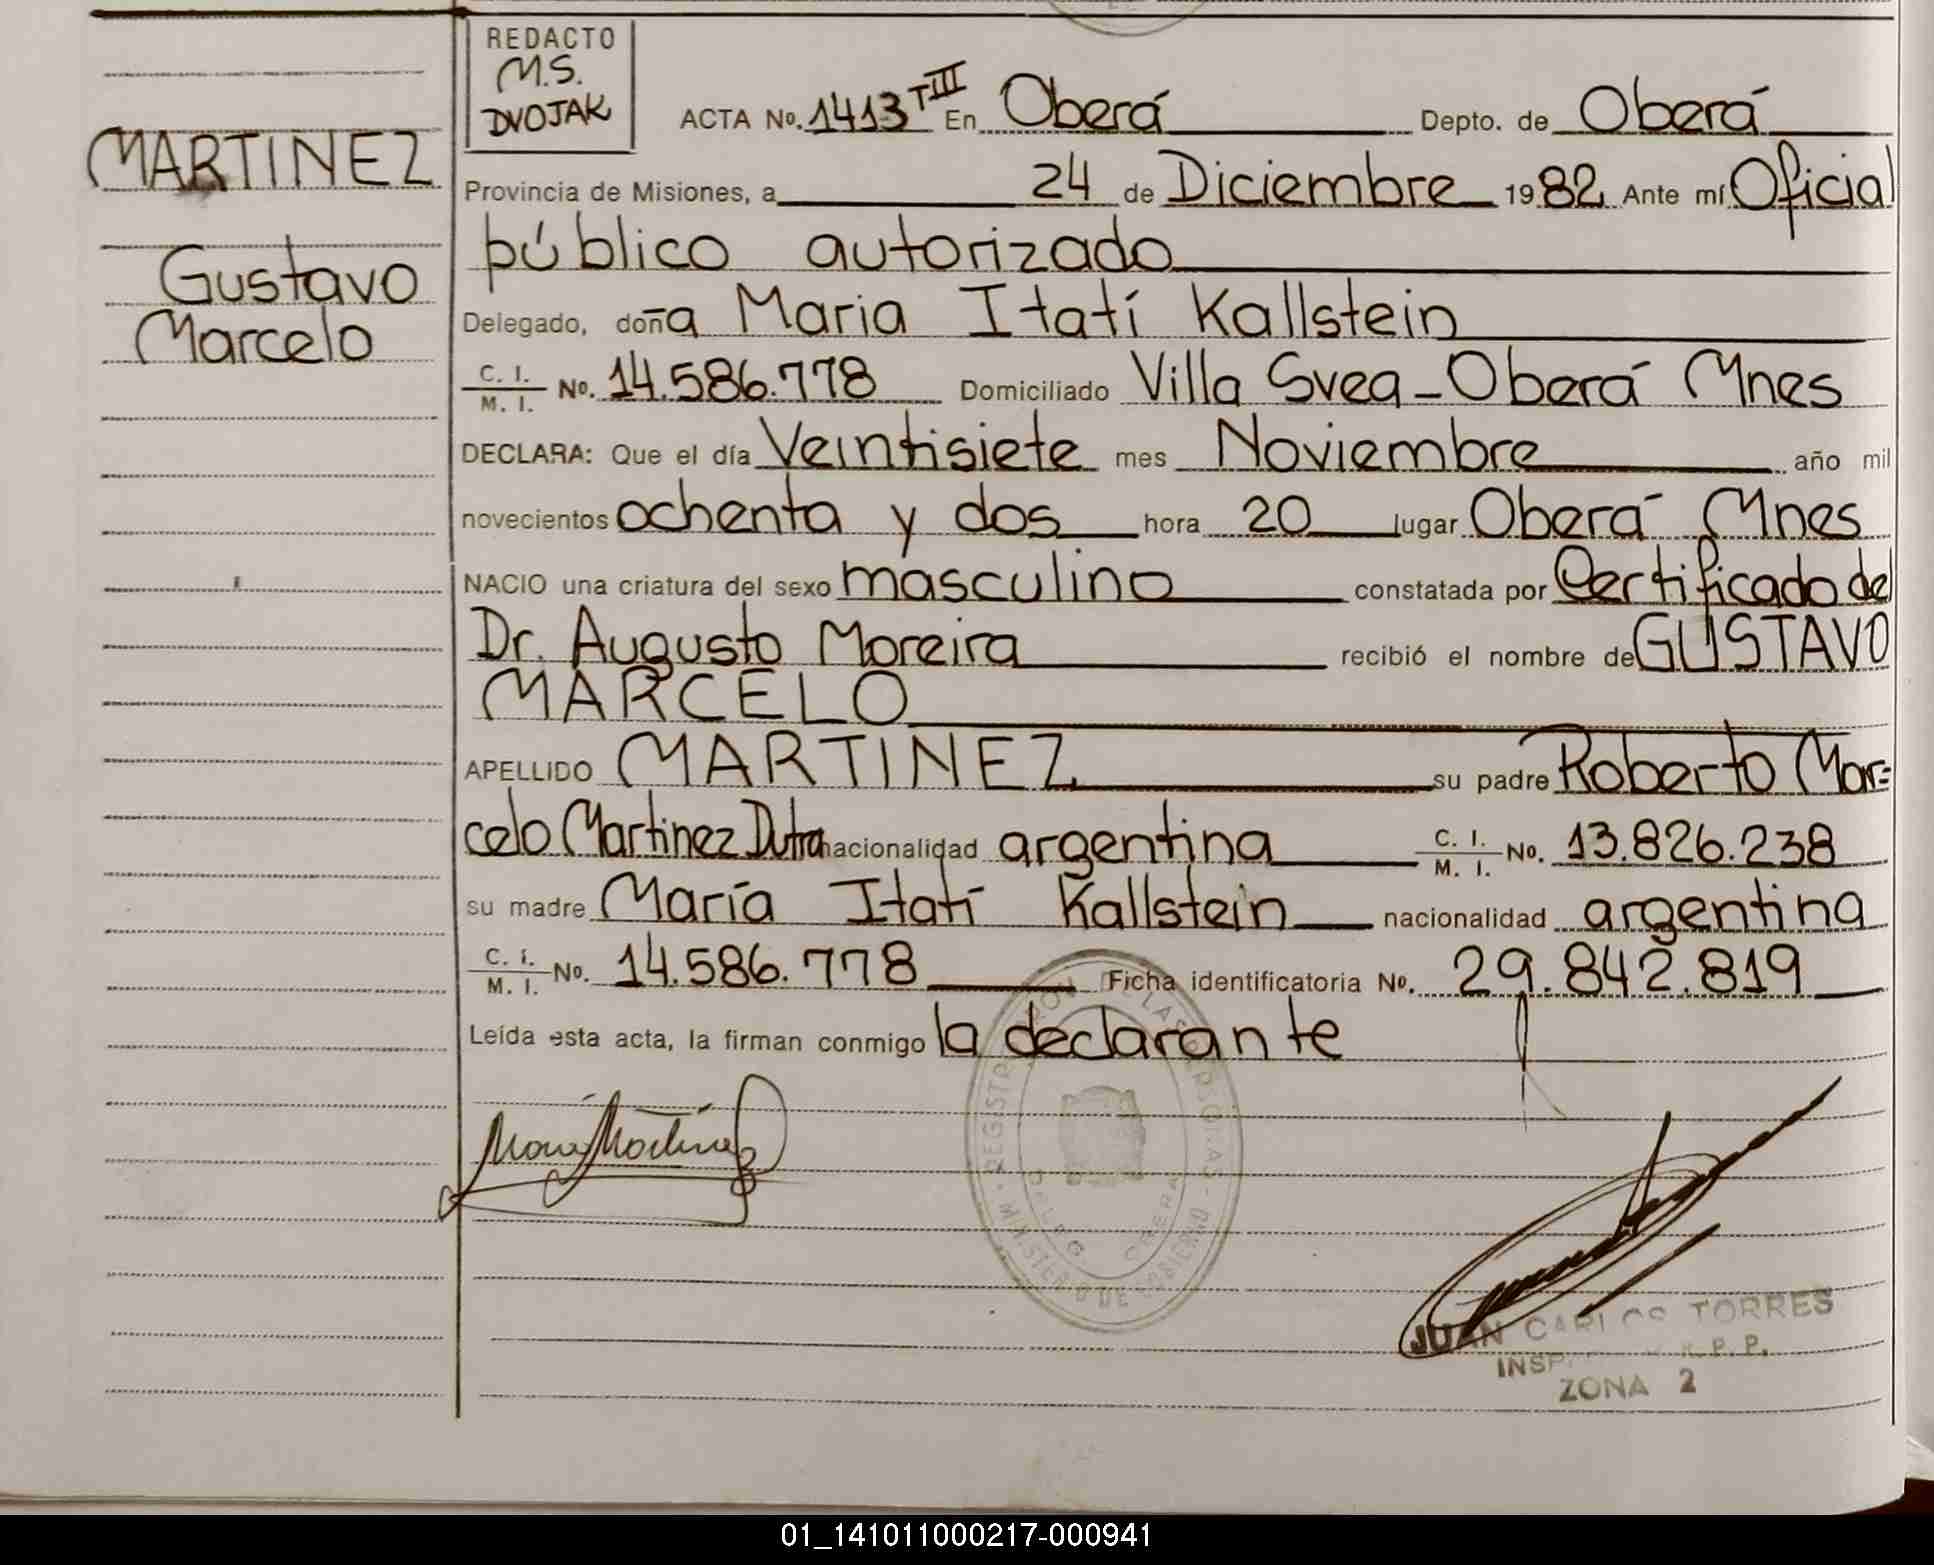 REDACTO
M.S.
DVOJAK
ACTA No. 1413 TIII En Oberá Depto. de Oberá
MARTINEZ
Provincia de Misiones, a 24 de Diciembre 1982 Ante mí Oficial
público autorizado
Gustavo
Marcelo
Delegado, doña Maria Itatí Kallstein
C. I. / M. I. No. 14.586.778 Domiciliado Villa Svea - Oberá Mnes
DECLARA: Que el día Veintisiete mes Noviembre año mil
novecientos ochenta y dos hora 20 lugar Oberá Mnes
NACIO una criatura del sexo masculino constatada por Certificado del
Dr. Augusto Moreira recibió el nombre de GUSTAVO
MARCELO
APELLIDO MARTINEZ su padre Roberto Mar=
celo Martinez Dutra nacionalidad argentina C. I. / M. I. No. 13.826.238
su madre María Itatí Kallstein nacionalidad argentina
C. I. / M. I. No. 14.586.778 Ficha identificatoria No. 29.842.819
Leída esta acta, la firman conmigo la declarante
REGISTRO PROV. DE LAS PERSONAS
MINISTERIO DE GOBIERNO
DELEG OBERA
JUAN CARLOS TORRES
R. P. P.
ZONA 2
01_141011000217-000941